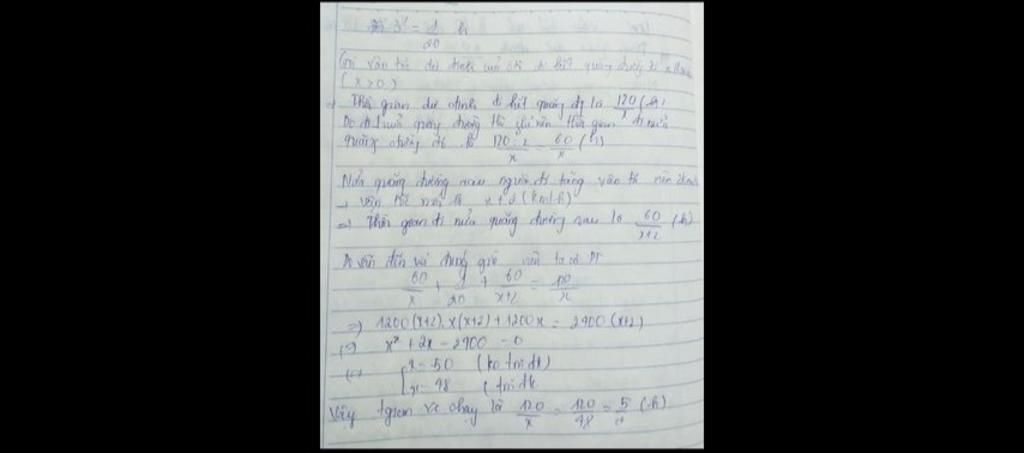 3' = 1/20 h
Gọi vận tốc dự định đi hết quãng đường là x
(x > 0)
=> Thời gian dự định đi hết quãng đg là 120/x (h)
Do đi quãng đường thời gian đi nửa
quãng đường đó là 120:2/x = 60/x (h)
Nửa quãng đường sau người đi tăng vận tốc nên
→ vận tốc mới là x+2 (km/h)
=> Thời gian đi nửa quãng đường sau là 60/x+2 (h)
Do vẫn đến đúng giờ nên ta có PT
60/x + 1/20 + 60/x+2 = 120/x
=> 1200(x+2). x(x+2) + 1200x = 2400(x+2)
x² + 2x - 2400 = 0
x = -50 (ko tm đk)
x = 48 (tm đk
Vậy tgian xe chạy là 120/x = 120/48 = 5/2 (h)